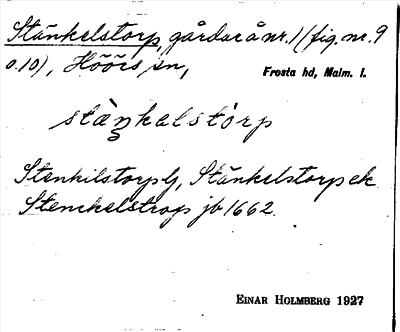 Stänkelstorp, gårdar å nr. 1 (fig. nr. 9
o. 10), Höörs sn, Frosta hd, Malm. l.
stàŋkalstórp
Stenkilstorp lj, Stänkelstorp ek
Stenckelstrop jb 1662.
EINAR HOLMBERG 1927